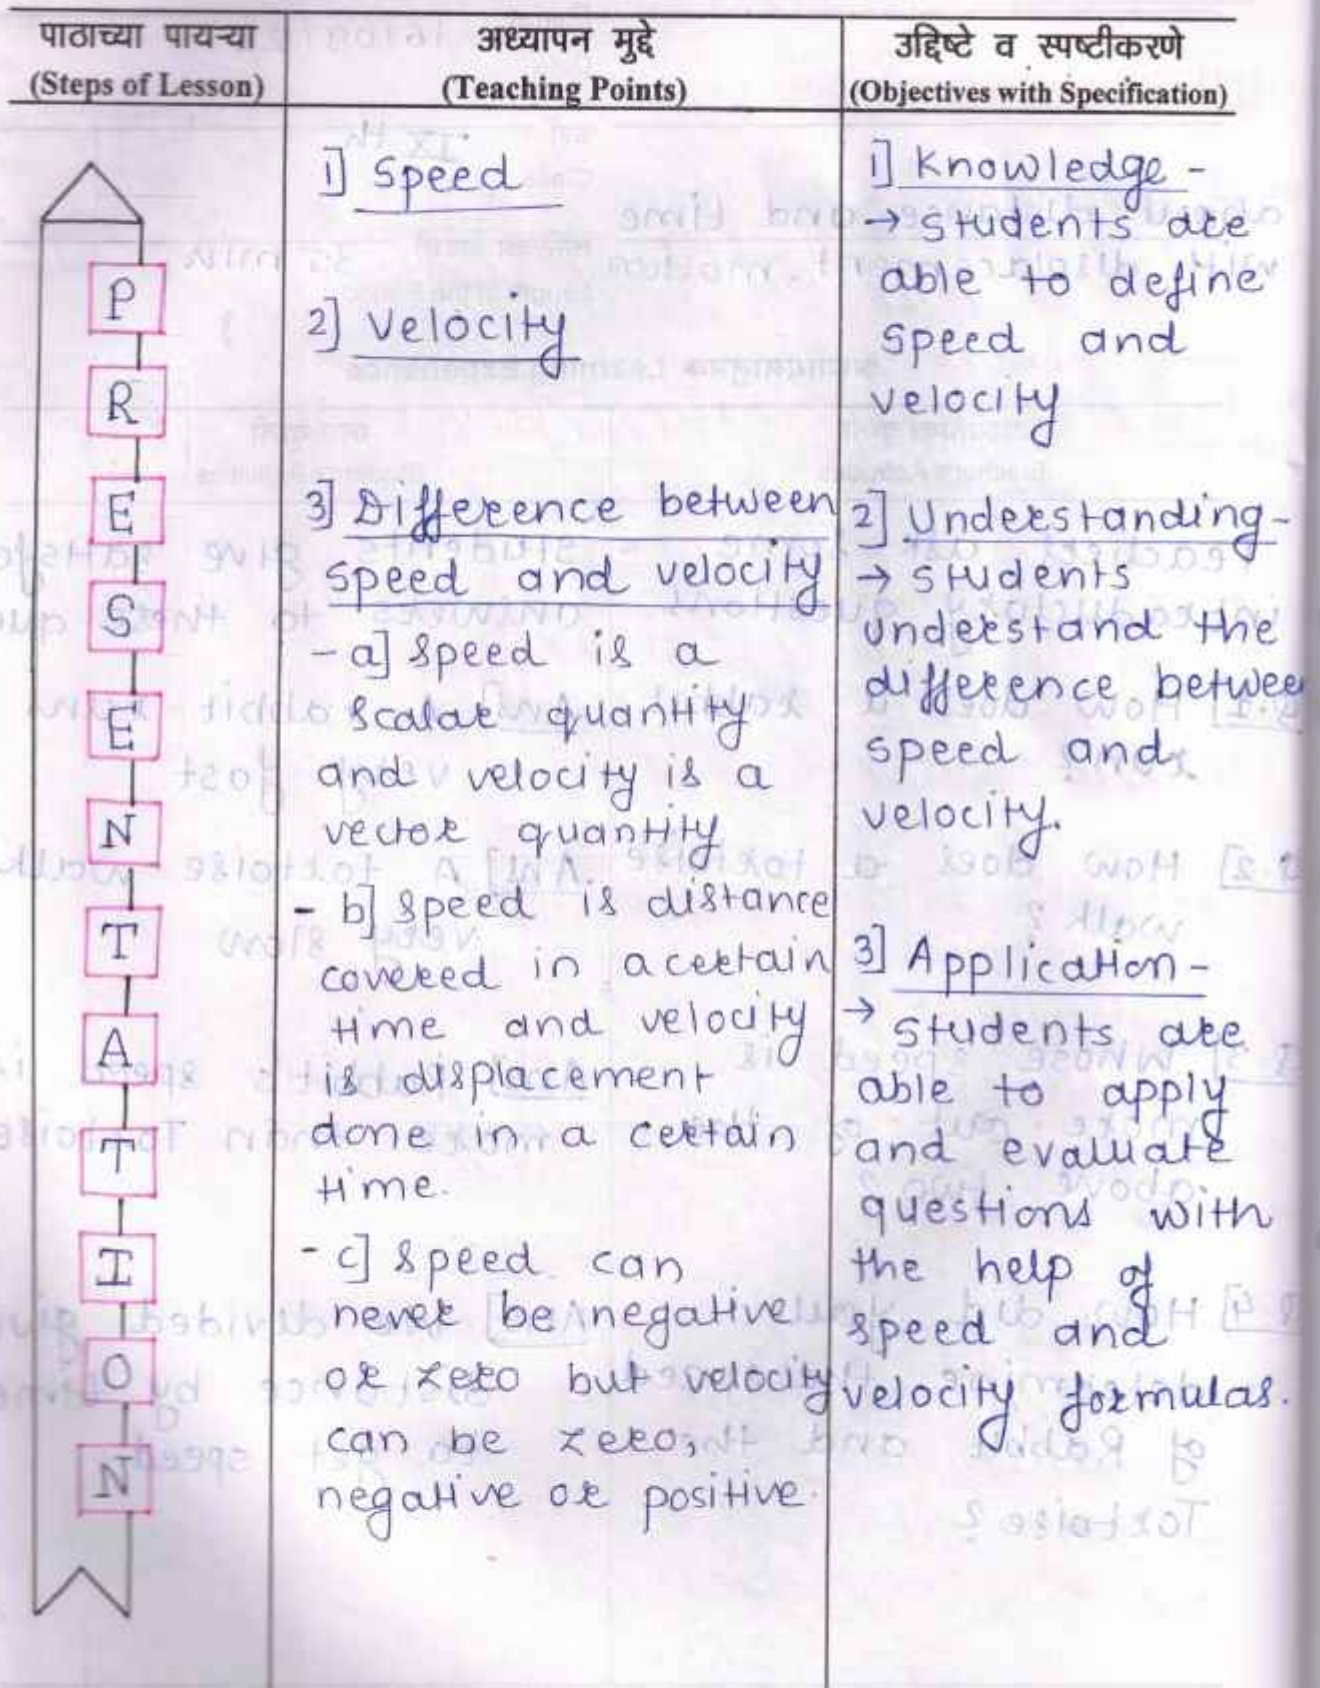 पाठाच्या पायऱ्या
(Steps of Lesson)
अध्यापन मुद्दे
(Teaching Points)
उद्दिष्टे व स्पष्टीकरणे
(Objectives with Specification)
P
R
E
S
E
N
T
A
T
I
O
N
1] Speed
2] Velocity
3] Difference between
speed and velocity
- a] Speed is a
scalar quantity
and velocity is a
vector quantity
- b] Speed is distance
covered in a certain
time and velocity
is displacement
done in a certain
time.
- c] Speed can
never be negative
or zero but velocity
can be zero,
negative or positive.
1] Knowledge -
→ Students are
able to define
speed and
velocity
2] Understanding -
→ Students
understand the
difference betwee
speed and
velocity.
3] Application -
→ Students are
able to apply
and evaluate
questions with
the help of
speed and
velocity formulas.